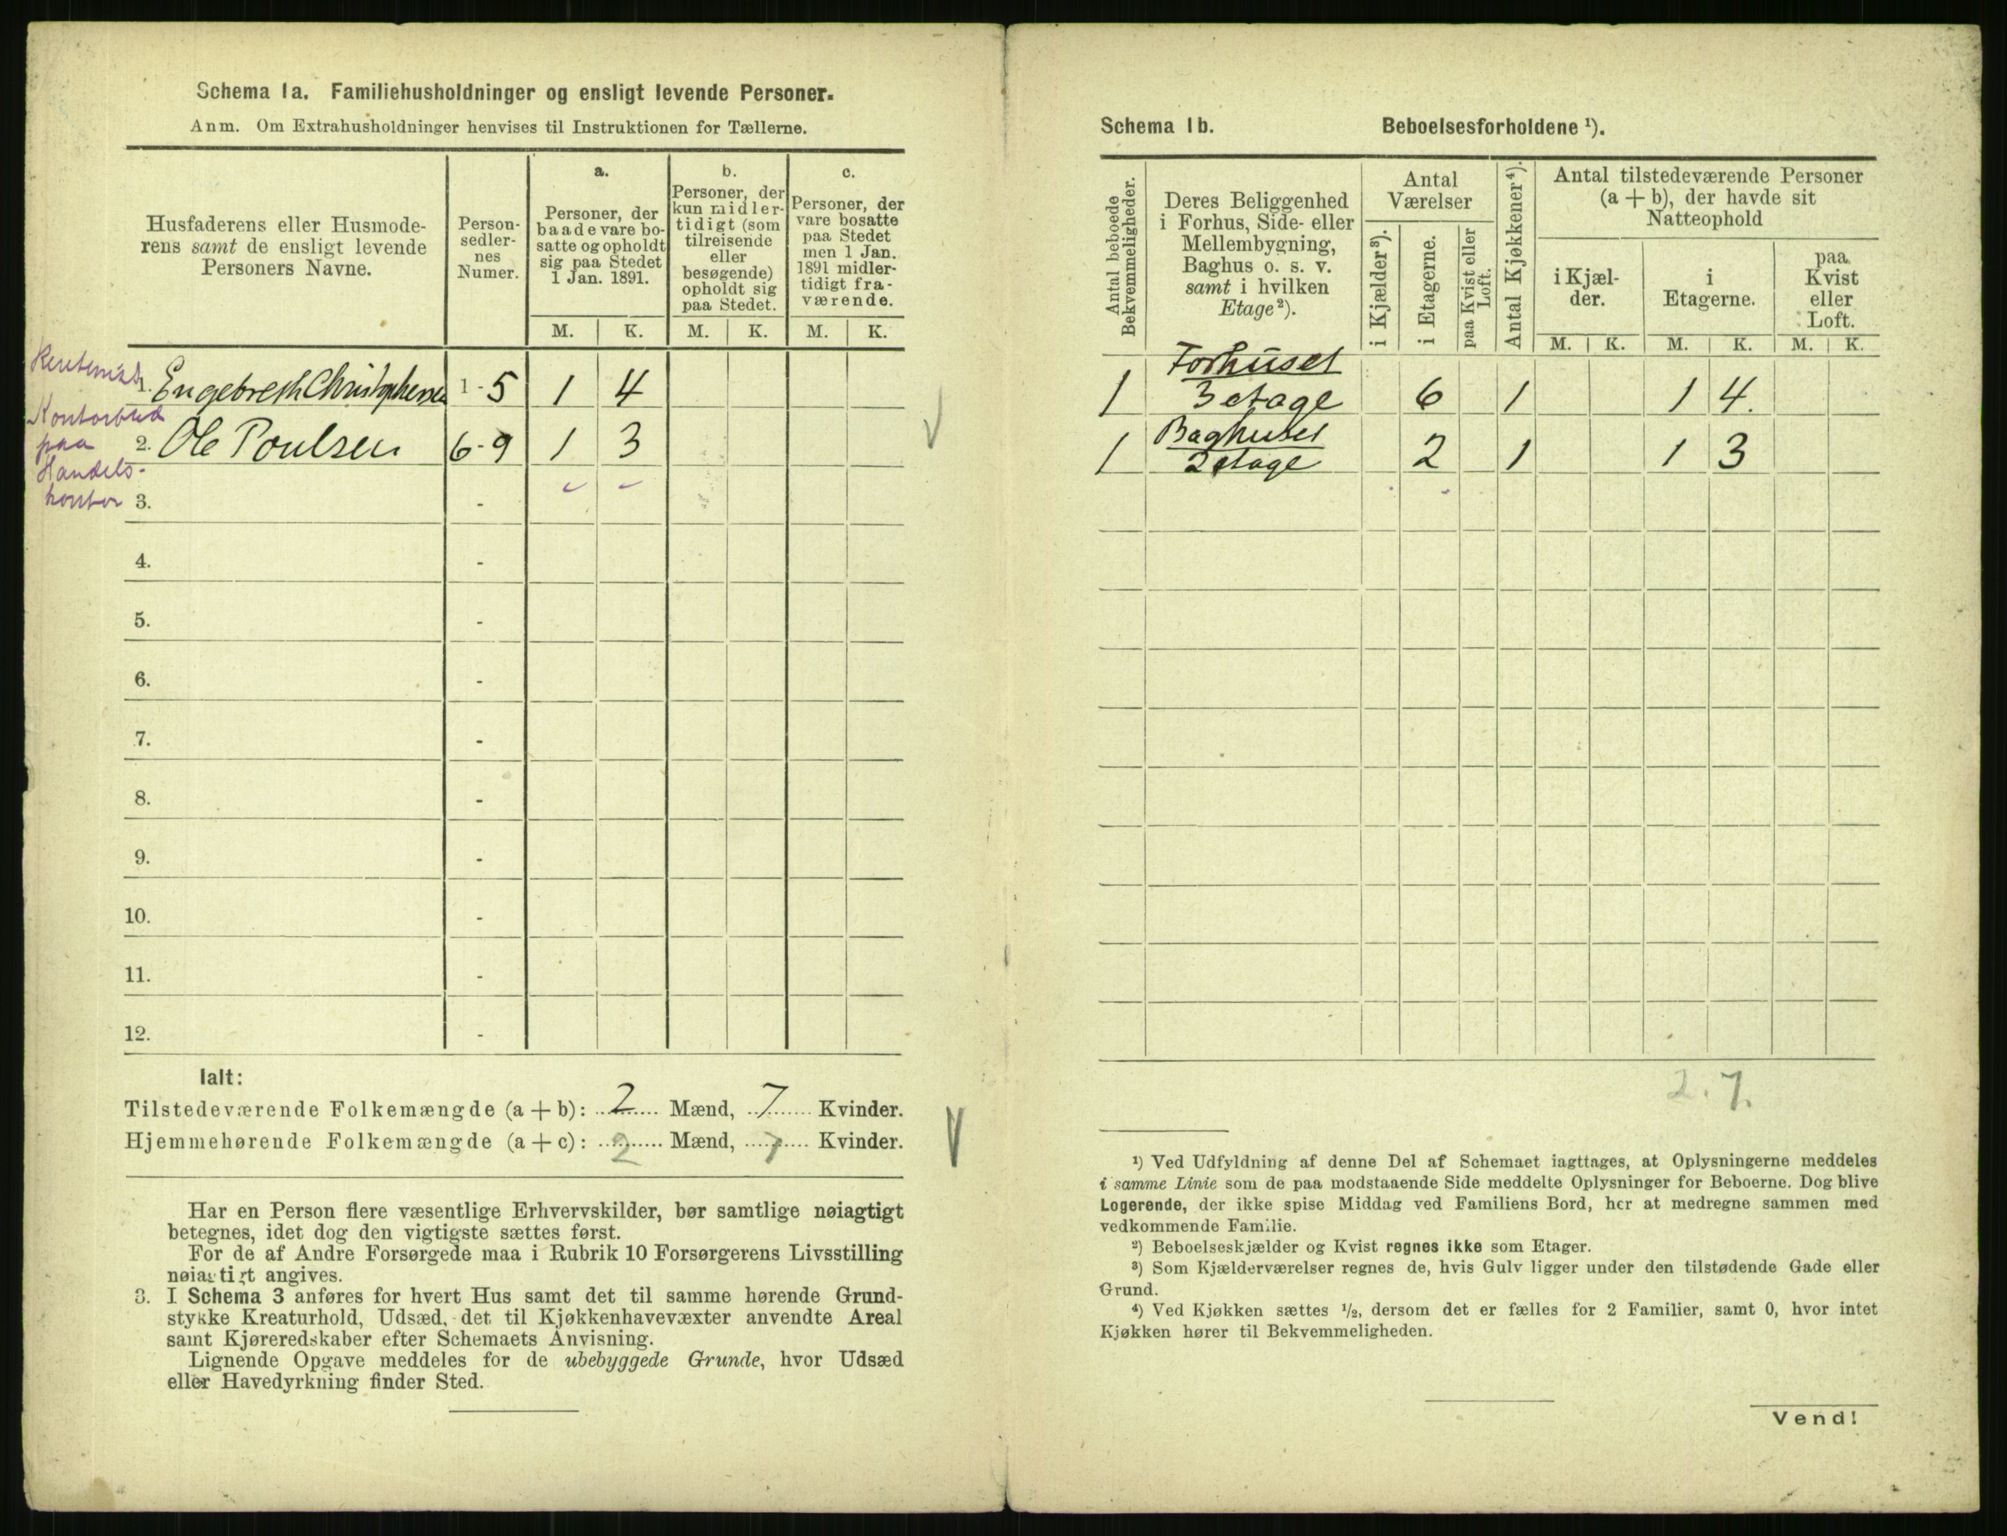 Schema 1a. Familiehusholdninger og ensligt levende Personer.
Anm. Om Extrahusholdninger henvises til Instruktionen for Tællerne.
Husfaderens eller Husmode-
rens samt de ensligt levende
Personers Navne.
Person-
sedler-
nes
Numer.
a.
Personer, der
baade vare bo-
satte og opholdt
sig paa Stedet
1 Jan. 1891.
b.
Personer, der
kun midler-
tidigt (som
tilreisende
eller
besøgende)
opholdt sig
paa Stedet.
c.
Personer, der
vare bosatte
paa Stedet
men 1 Jan.
1891 midler-
tidigt fra-
værende.
M. K. M. K. M. K.
Rentenist
1. Engebreth Christophersen 1 - 5 1 4
Kontorbud
paa
Handels-
kontor
2. Ole Poulsen 6 - 9 1 3
3. -
4. -
5. -
6. -
7. -
8. -
9. -
10. -
11. -
12. -
Ialt:
Tilstedeværende Folkemængde (a + b): 2 Mænd, 7 Kvinder.
Hjemmehørende Folkemængde (a + c): 2 Mænd, 7 Kvinder.
Har en Person flere væsentlige Erhvervskilder, bør samtlige nøiagtigt
betegnes, idet dog den vigtigste sættes først.
For de af Andre Forsørgede maa i Rubrik 10 Forsørgerens Livsstilling
nøiagtigt angives.
3. I Schema 3 anføres for hvert Hus samt det til samme hørende Grund-
stykke Kreaturhold, Udsæd, det til Kjøkkenhavevæxter anvendte Areal
samt Kjøreredskaber efter Schemaets Anvisning.
Lignende Opgave meddeles for de ubebyggede Grunde, hvor Udsæd
eller Havedyrkning finder Sted.
Schema 1b. Beboelsesforholdene ¹).
Antal beboede
Bekvemmeligheder.
Deres Beliggenhed
i Forhus, Side- eller
Mellembygning,
Baghus o. s. v.
samt i hvilken
Etage²).
Antal
Værelser
i Kjælder³).
i Etagerne.
paa Kvist eller
Loft.
Antal Kjøkkener⁴).
Antal tilstedeværende Personer
(a + b), der havde sit
Natteophold
i Kjæl-
der.
i
Etagerne.
paa
Kvist
eller
Loft.
M. K. M. K. M. K.
Forhuset
1 3 etage 6 1 1 4.
Baghuset
1 2 etage 2 1 1 3
2. 7.
¹) Ved Udfyldning af denne Del af Schemaet iagttages, at Oplysningerne meddeles
i samme Linie som de paa modstaaende Side meddelte Oplysninger for Beboerne. Dog blive
Logerende, der ikke spise Middag ved Familiens Bord, her at medregne sammen med
vedkommende Familie.
²) Beboelseskjælder og Kvist regnes ikke som Etager.
³) Som Kjælderværelser regnes de, hvis Gulv ligger under den tilstødende Gade eller
Grund.
⁴) Ved Kjøkken sættes ½, dersom det er fælles for 2 Familier, samt 0, hvor intet
Kjøkken hører til Bekvemmeligheden.
Vend!